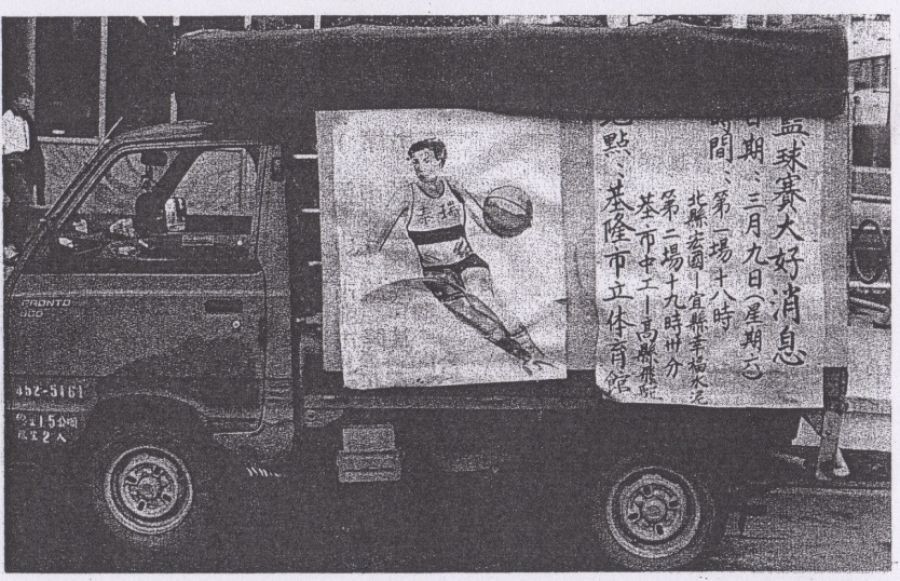 籃球賽大好消息
日期：三月九日（星期六）
時間：第一場十八時
北縣宏國－宜縣幸福水泥
第二場十九時卅分
基市中工－高縣飛駝
地點：基隆市立体育館
PRONTO
452-5161
2人